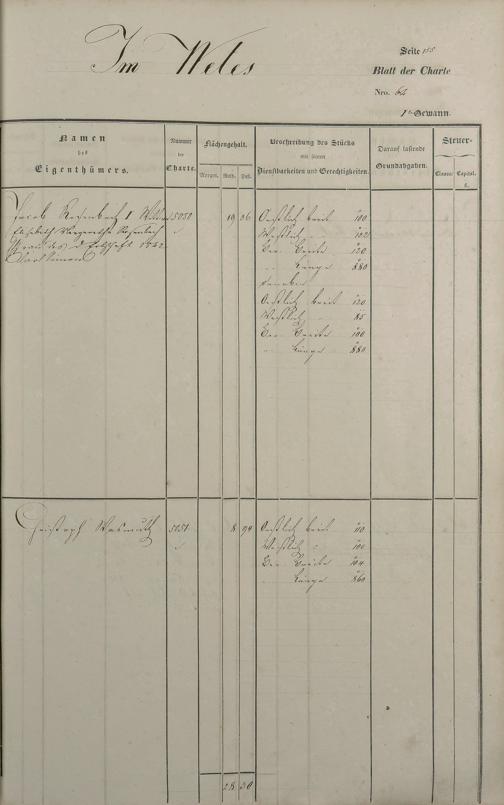 Im Weles
Seite 155
Blatt der Charte
Nro. 64
1te Gewann.
Namen
des
Eigenthümers.
Nummer
der
Charte.
Flächengehalt.
Morgen. Ruth. Fuß.
Beschreibung des Stücks
mit seinen
Dienstbarkeiten und Gerechtigkeiten.
Darauf lastende
Grundabgaben.
Steuer-
Classe. Capital.
fl.
Jacob Rosenbach I 5050 19 36 Oestlich breit 100
Elisabeth Margaretha Rosenbach Westlich " 102
Frau des 1842 Ger. Breite 120
" Länge 880
daneben
Oestlich breit 120
Westlich 85
Ger. Breite 100
" Länge 880
Christoph Wasmuth 5051 8 94 Oestlich breit 110
Westlich " 100
Ger. Breite 104
Länge 860
28 30